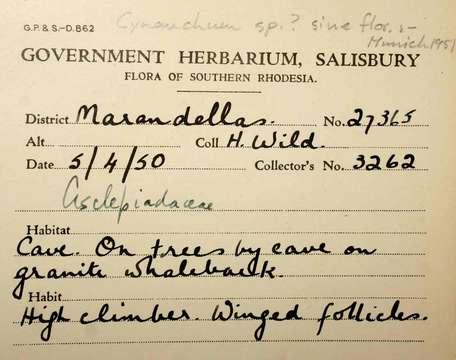 G.P.& S.–D.862
Cynanchum sp.? sine flor. :-
Munich 1951
GOVERNMENT HERBARIUM, SALISBURY
FLORA OF SOUTHERN RHODESIA.
District Marandellas. No. 27365
Alt. Coll H. Wild.
Date 5/4/50 Collector's No. 3262
Asclepiadaceae
Habitat
Cave. On trees by cave on
granite whaleback.
Habit
High climber. Winged follicles.